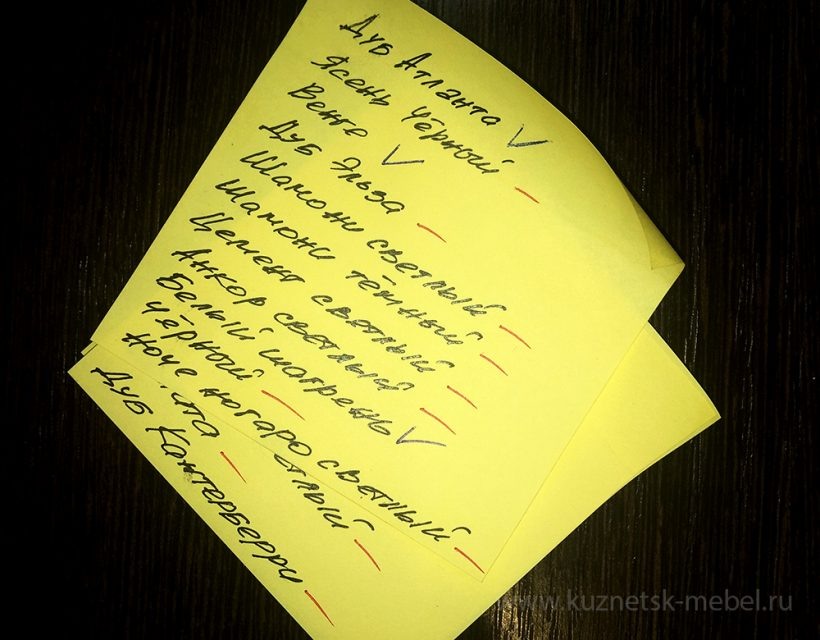 Дуб Атланта ✓
Ясень чёрный –
Венге ✓
Дуб Эльза –
Шамони светлый –
Шамони тёмный –
Цемент светлый –
Анкор светлый –
Белый шагрень ✓
Чёрный –
Ноче ногаро светлый –
Дуб Кантерберри –
www.kuznetsk-mebel.ru